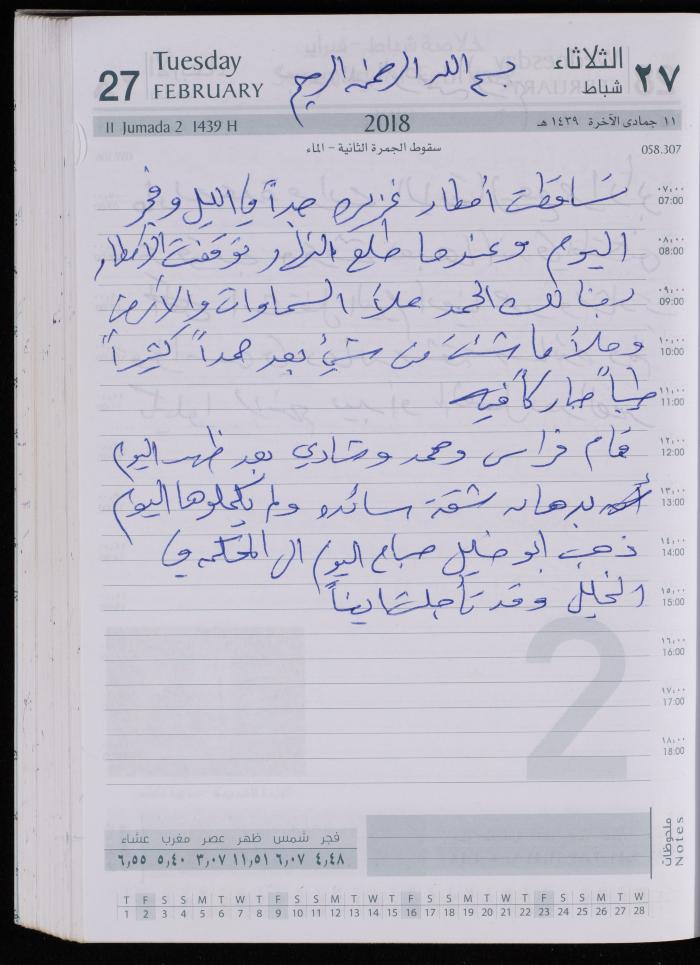 27
Tuesday
FEBRUARY
بسم الله الرحمن الرحيم
الثلاثاء
شباط
٢٧
11 Jumada 2 1439 H
2018
١١ جمادى الآخرة ١٤٣٩ هـ
سقوط الجمرة الثانية - الماء
058.307
تساقطت أمطار غزيره جداً في الليل وفجر
٠٧:٠٠ 07:00
اليوم وعندما طلع النهار توقفت الأمطار
٠٨:٠٠ 08:00
ربنا لك الحمد ملأ السماوات والأرض
٠٩:٠٠ 09:00
وملأ ما شئت من شيئ بعد حمداً كثيراً
١٠:٠٠ 10:00
طيباً مباركاً فيه
١١:٠٠ 11:00
قام فراس ومحمد وشادي بعد ظهر اليوم
١٢:٠٠ 12:00
بدهان شقة سائده ولم يكملوها اليوم
١٣:٠٠ 13:00
ذهب ابو خليل صباح اليوم الى المحكمه في
١٤:٠٠ 14:00
الخليل وقد تأجلت
١٥:٠٠ 15:00
١٦:٠٠ 16:00
١٧:٠٠ 17:00
١٨:٠٠ 18:00
2
فجر شمس ظهر عصر مغرب عشاء
٤,٤٨ ٦,٠٧ ١١,٥١ ٣,٠٧ ٥,٤٠ ٦,٥٥
ملحوظات
Notes
T F S S M T W T F S S M T W T F S S M T W T F S S M T W
1 2 3 4 5 6 7 8 9 10 11 12 13 14 15 16 17 18 19 20 21 22 23 24 25 26 27 28